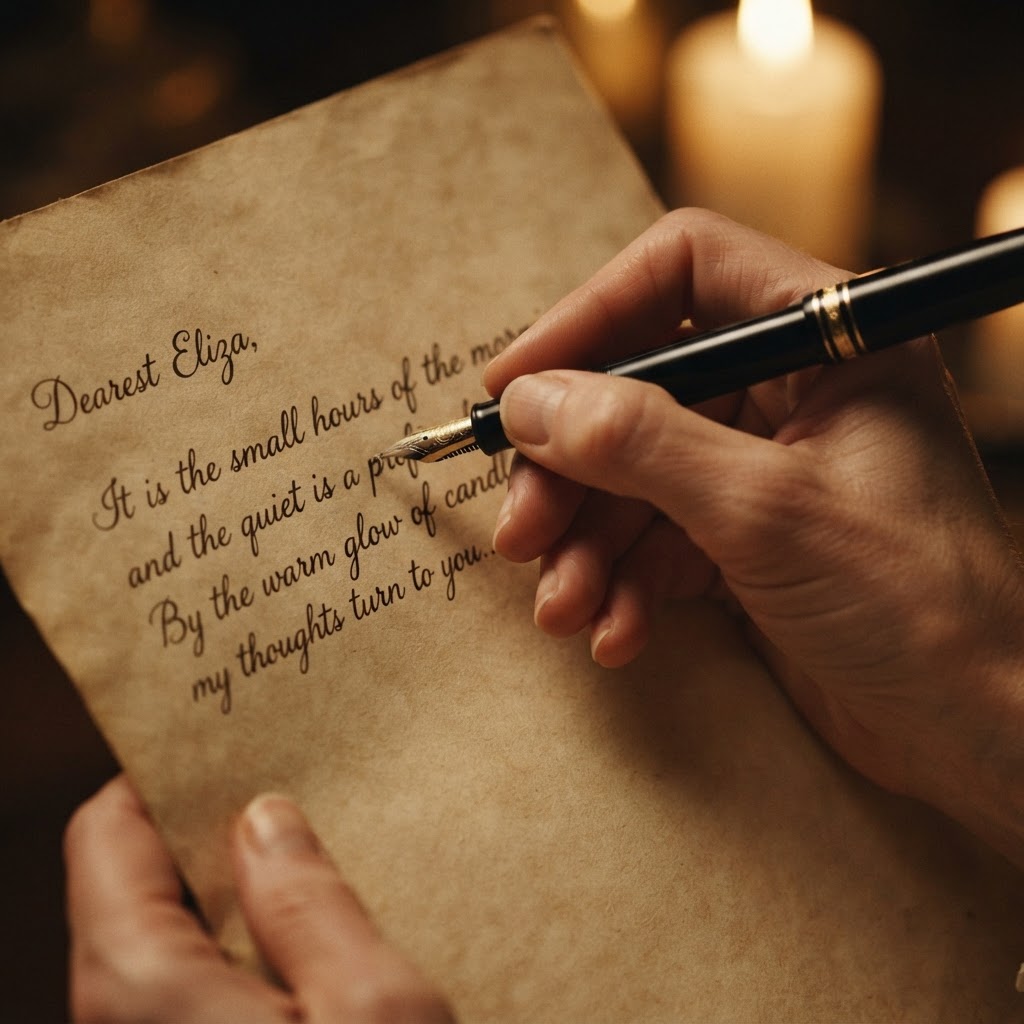 Dearest Eliza,
It is the small hours of the
and the quiet is a
By the warm glow of
my thoughts turn to you...